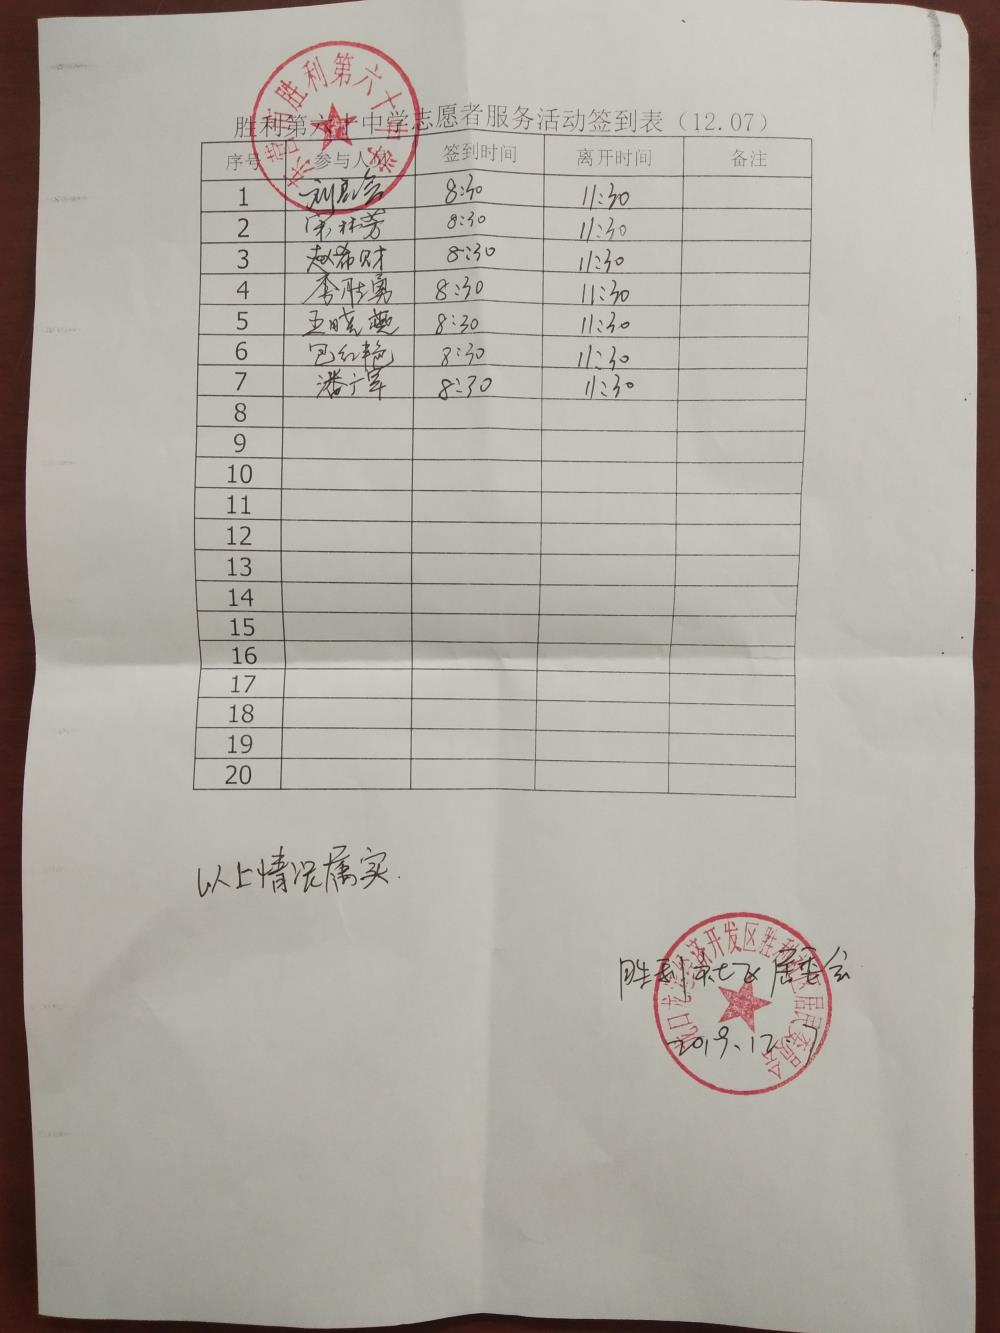 东营市胜利第六十中学
胜利第六十中学志愿者服务活动签到表（12.07）
序号 参与人 签到时间 离开时间 备注
1 刘 8:30 11:30
2 宋林芳 8:30 11:30
3 赵希财 8:30 11:30
4 李胜勇 8:30 11:30
5 王晓燕 8:30 11:30
6 包红艳 8:30 11:30
7 潘广军 8:30 11:30
8
9
10
11
12
13
14
15
16
17
18
19
20
以上情况属实.
胜利社区居委会
2019.12.7
开发区胜利社区居民委员会